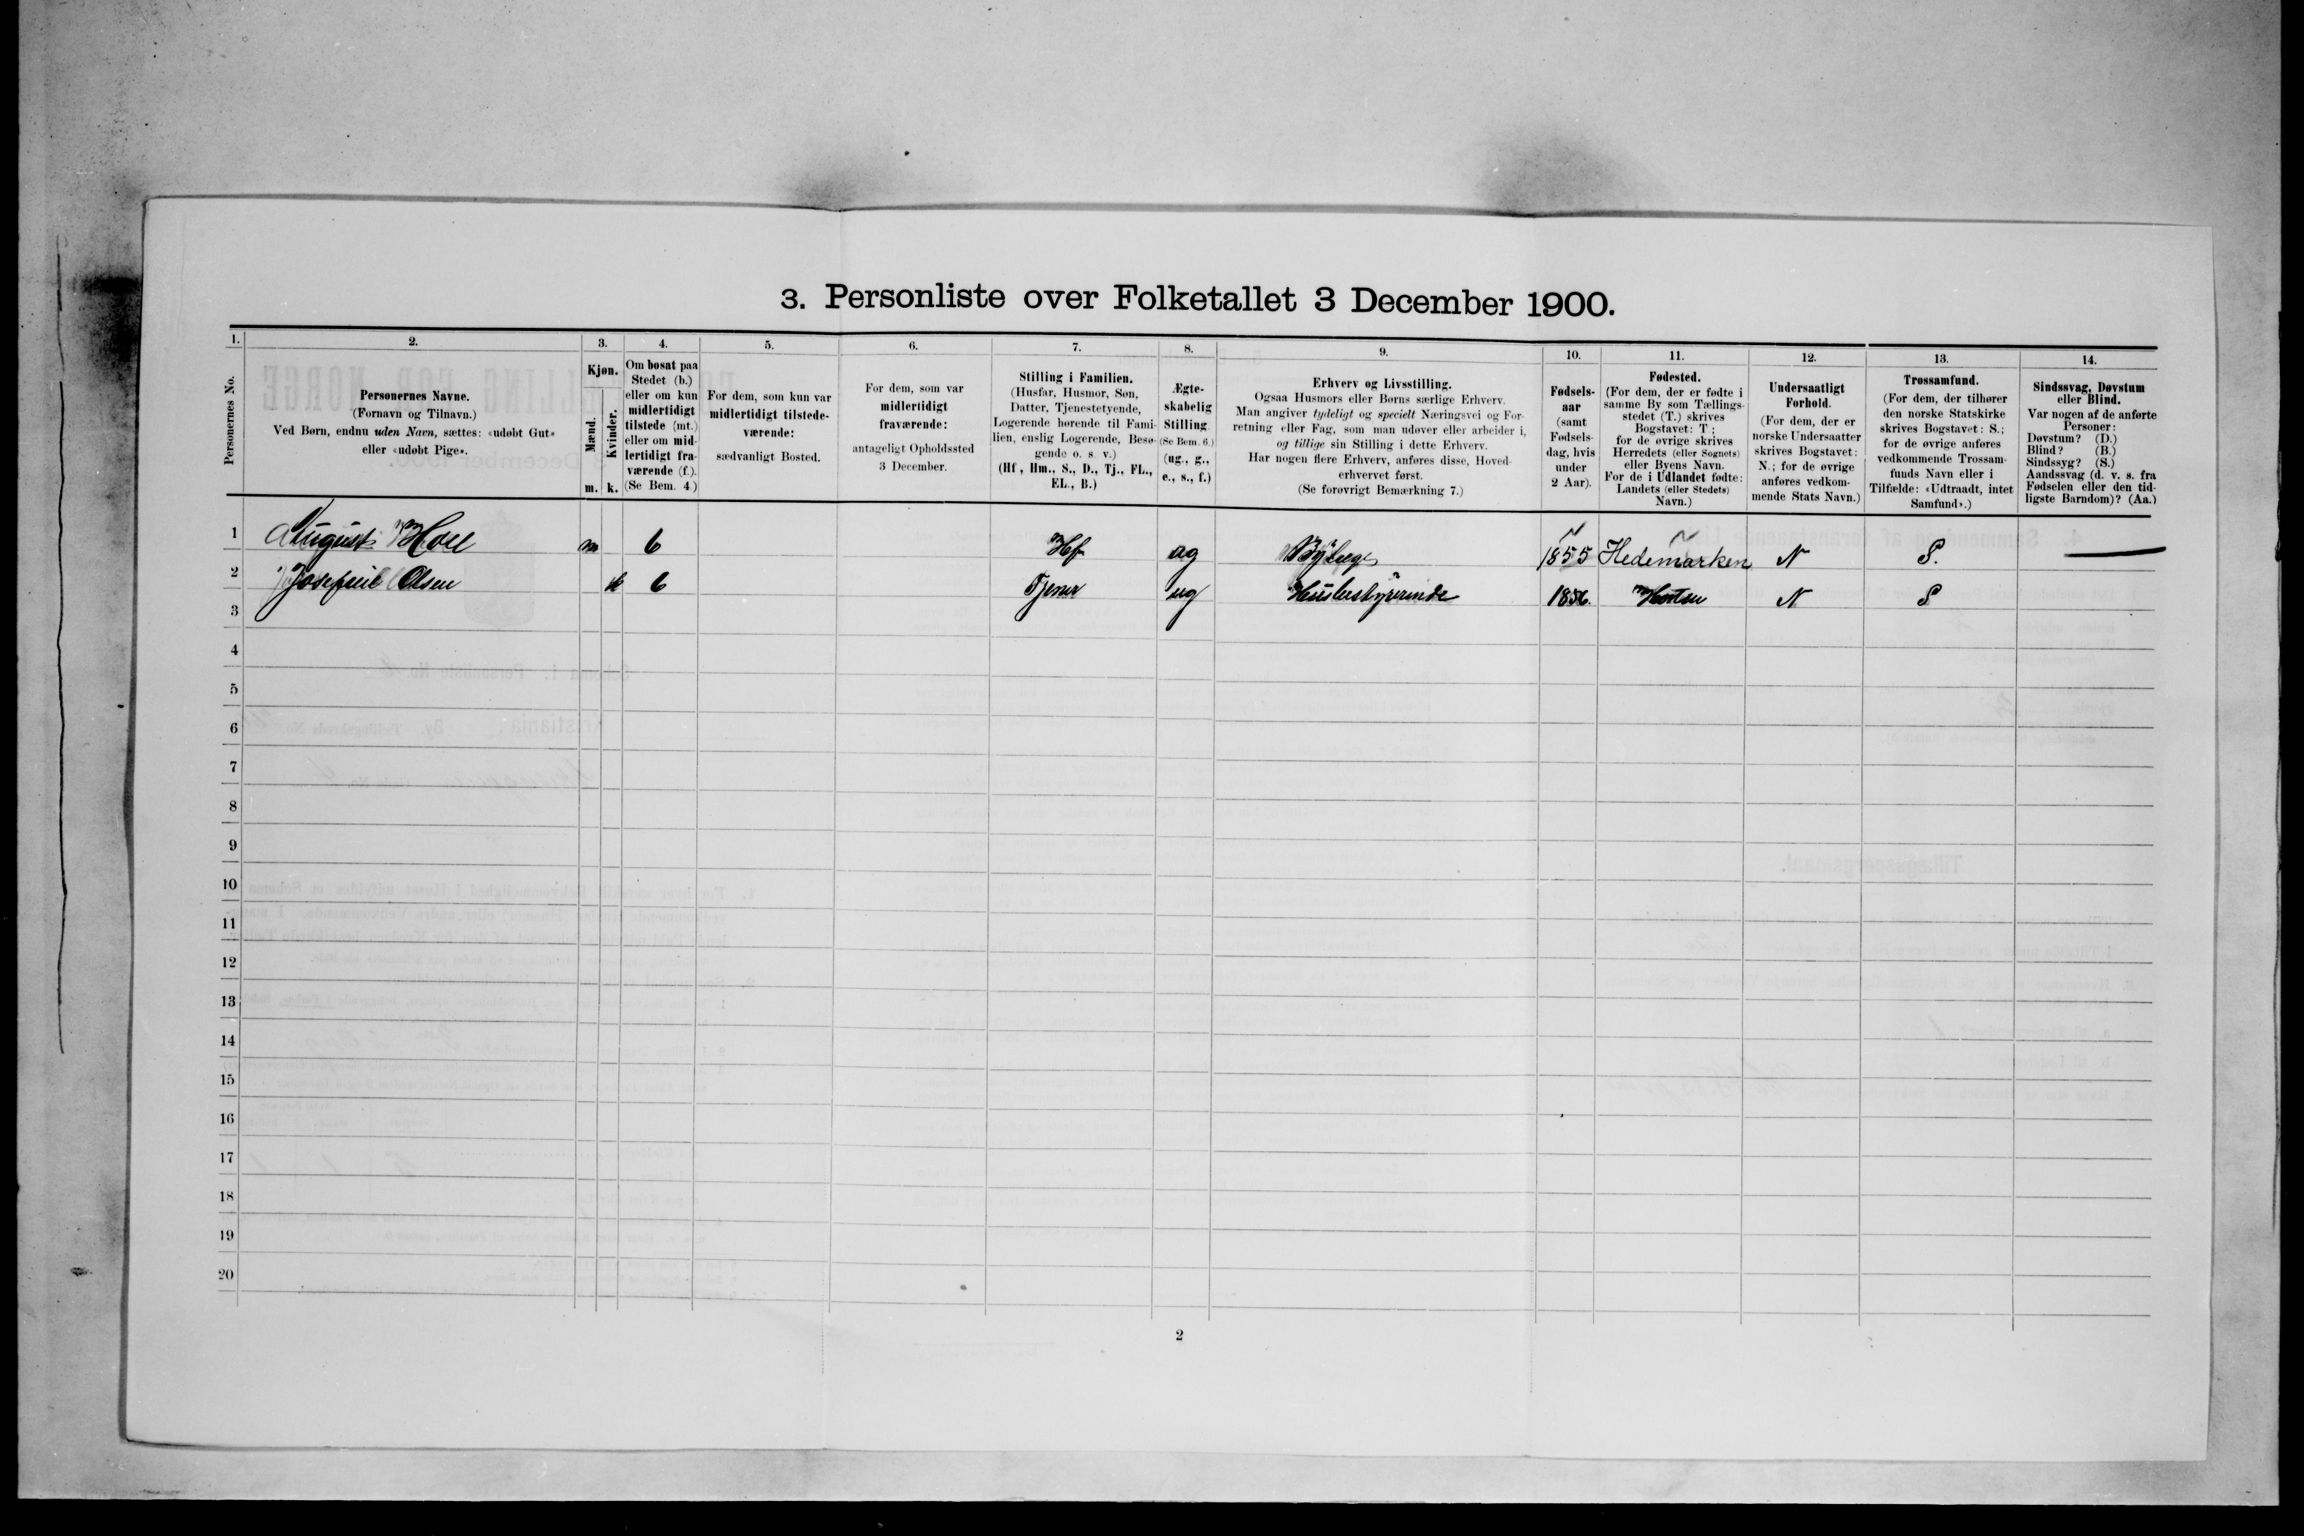 3. Personliste over Folketallet 3 December 1900.
1. 2. 3. 4. 5. 6. 7. 8. 9. 10. 11. 12. 13. 14.
Personernes No.
Personernes Navne.
(Fornavn og Tilnavn.)
Ved Børn, endnu uden Navn, sættes: «udøbt Gut»
eller «udøbt Pige».
Kjøn.
Mænd.
Kvinder.
m. k.
Om bosat paa
Stedet (b.)
eller om kun
midlertidigt
tilstede (mt.)
eller om mid-
lertidigt fra-
værende (f.).
(Se Bem. 4.)
For dem, som kun var
midlertidigt tilstede-
værende:
sædvanligt Bosted.
For dem, som var
midlertidigt
fraværende:
antageligt Opholdssted
3 December.
Stilling i Familien.
(Husfar, Husmor, Søn,
Datter, Tjenestetyende,
Logerende hørende til Fami-
lien, enslig Logerende, Besø-
gende o. s. v.)
(Hf., Hm., S., D., Tj., FL.,
EL., B.)
Ægte-
skabelig
Stilling.
(Se Bem. 6.)
(ug., g.,
e., s., f.)
Erhverv og Livsstilling.
Ogsaa Husmors eller Børns særlige Erhverv.
Man angiver tydeligt og specielt Næringsvei og For-
retning eller Fag, som man udøver eller arbeider i,
og tillige sin Stilling i dette Erhverv.
Har nogen flere Erhverv, anføres disse, Hoved-
erhvervet først.
(Se forøvrigt Bemærkning 7.)
Fødsels-
aar
(samt
Fødsels-
dag, hvis
under
2 Aar).
Fødested.
(For dem, der er fødte i
samme By som Tællings-
stedet (T.) skrives
Bogstavet: T.;
for de øvrige skrives
Herredets (eller Sognets)
eller Byens Navn.
For de i Udlandet fødte:
Landets (eller Stedets)
Navn.)
Undersaatligt
Forhold.
(For dem, der er
norske Undersaatter
skrives Bogstavet:
N.; for de øvrige
anføres vedkom-
mende Stats Navn.)
Trossamfund.
(For dem, der tilhører
den norske Statskirke
skrives Bogstavet: S.;
for de øvrige anføres
vedkommende Trossam-
funds Navn eller i
Tilfælde: «Udtraadt, intet
Samfund».)
Sindssvag, Døvstum
eller Blind.
Var nogen af de anførte
Personer:
Døvstum? (D.)
Blind? (B.)
Sindssyg? (S.)
Aandssvag (d. v. s. fra
Fødselen eller den tid-
ligste Barndom)? (Aa.)
1 August Holl m b Hf ug 1855 Hedemarken N S.
2 Josefine Olsen k b Tjener ug Husbestyrerinde 1856. Horten N S
3
4
5
6
7
8
9
10
11
12
13
14
15
16
17
18
19
20
2